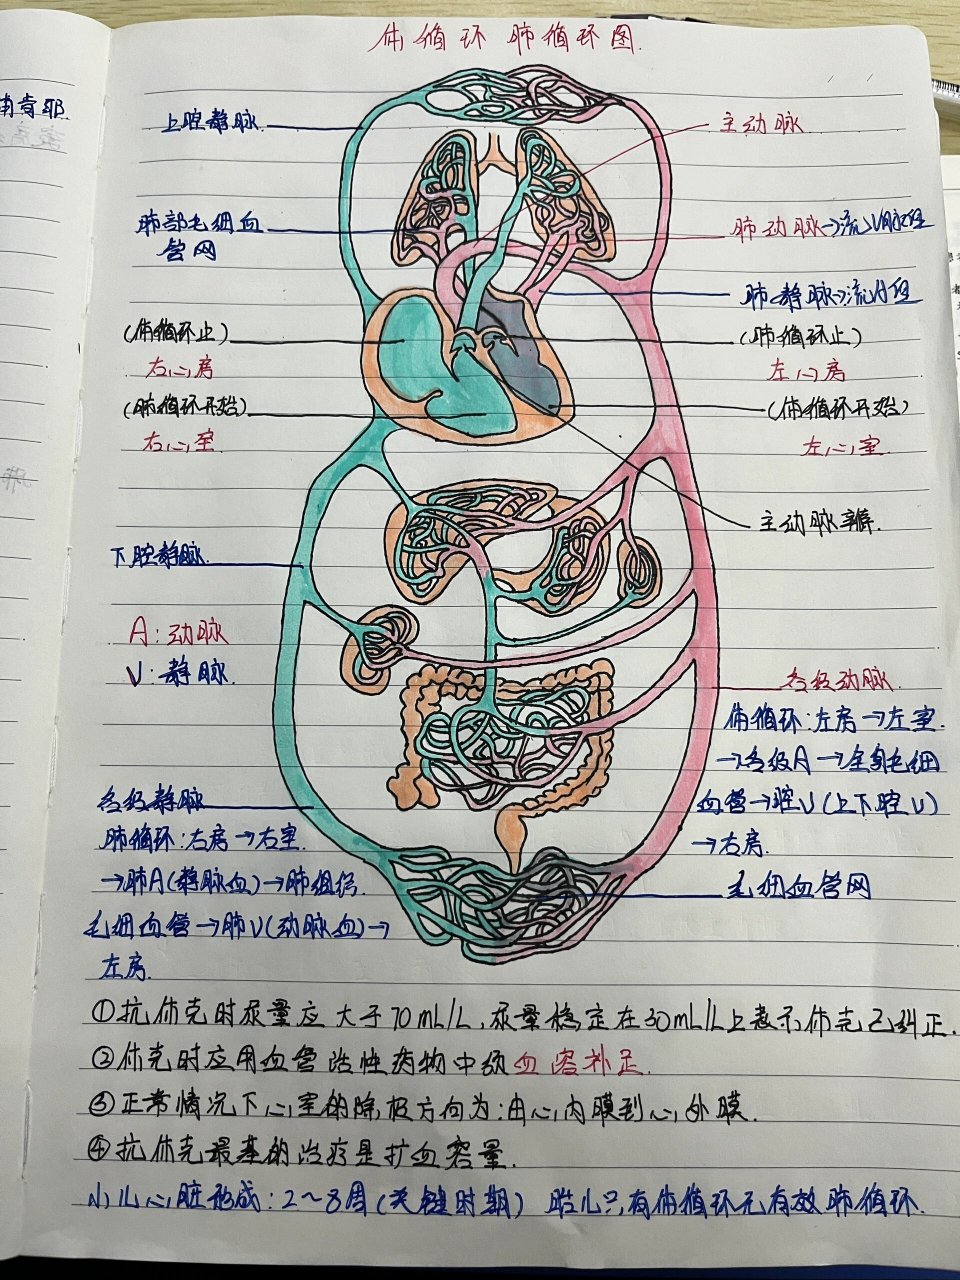 体循环 肺循环图.
上腔静脉
主动脉
肺部毛细血
管网
肺动脉→流
肺静脉→流
(体循环止)
右心房
(肺循环止)
左心房
(肺循环开始)
右心室
(体循环开始)
左心室
主动脉瓣.
下腔静脉
A:动脉
V:静脉
各级动脉
体循环:左房→左室.
→各级A→全身毛细
血管→腔V(上下腔V)
→右房.
毛细血管网
各级静脉
肺循环:右房→右室.
→肺A(静脉血)→肺组织.
毛细血管→肺V(动脉血)→
左房
①抗休克时尿量应大于70mL/L,尿量稳定在30mL/L上表示休克已纠正.
②休克时应用血管活性药物中须血容补足.
③正常情况下心室的除极方向为:由心内膜到心外膜.
④抗休克最基的治疗是扩血容量.
小儿心脏形成:2~8周(关键时期) 胎儿只有体循环无有效肺循环.